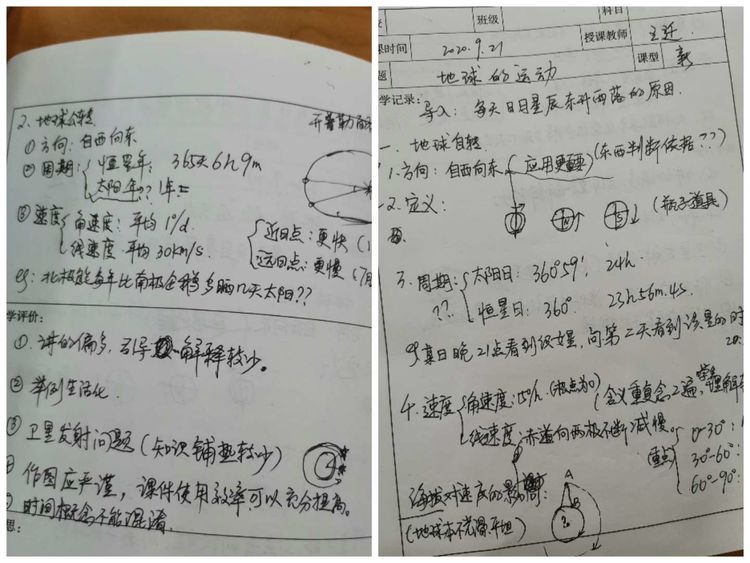 2、地球公转
开普勒
① 方向：自西向东
② 周期：恒星年：365天6h9m
太阳年：?? 1年=
③ 速度 角速度：平均1°/d
线速度 平均30km/s.
近日点：更快（1
远日点：更慢（7月
eg：北极 每年比南极 多晒几天太阳??
学评价：
①、讲的偏多，引导 解释较少。
② 举例生活化
③ 卫星发射问题（知识铺垫较少）
作图应严谨，课件使用效率可以充分提高。
时间概念不能混淆.
思：
班级
科目
课时间 2020.9.21 授课教师 王
题 地球的运动 课型 新
学记录：
导入：每天日月星辰东升西落的原因.
一、地球自转
1.方向：自西向东 应用更重要（东西判断依据??）
2.定义：
N S （瓶子道具）
3.周期：太阳日：360°59′ 24h
?? 恒星日：360° 23h56m4s.
eg 某日晚21点看到织女星，问第二天看到该星的时
4.速度 角速度：15°/h.（极点为0）（含义重复念2遍， 理解
线速度：赤道向两极不断减慢。
（重点） 0-30°：
30°-60°：
60°-90°：
海拔对速度的影响：
A
B
（地球本不光滑平坦）